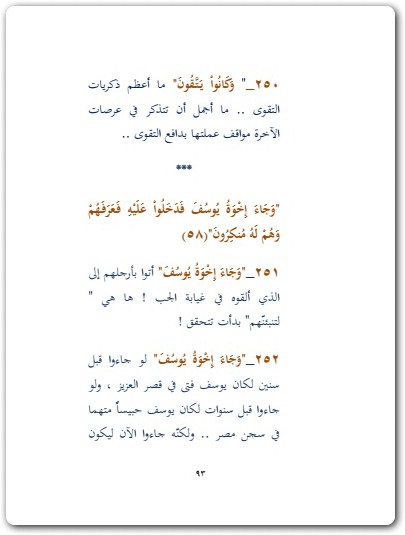 ٢٥٠_" وَكَانُواْ يَتَّقُونَ" ما أعظم ذكريات
التقوى .. ما أجمل أن تتذكر في عرصات
الآخرة مواقف عملتها بدافع التقوى ..
***
"وَجَاءَ إِخْوَةُ يُوسُفَ فَدَخَلُواْ عَلَيْهِ فَعَرَفَهُمْ
وَهُمْ لَهُ مُنكِرُونَ"(٥٨)
٢٥١_"وَجَاءَ إِخْوَةُ يُوسُفَ" أتوا بأرجلهم إلى
الذي ألقوه في غيابة الجب ! ها هي "
لتنبئنّهم" بدأت تتحقق !
٢٥٢_"وَجَاءَ إِخْوَةُ يُوسُفَ" لو جاءوا قبل
سنين لكان يوسف فتى في قصر العزيز ، ولو
جاءوا قبل سنوات لكان يوسف حبيساً متهما
في سجن مصر .. ولكنّه جاءوا الآن ليكون
٩٣